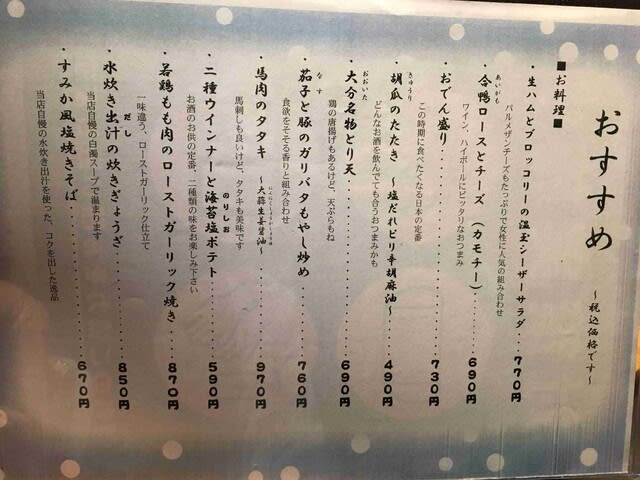 おすすめ
～税込価格です～
■お料理■
・生ハムとブロッコリーの温玉シーザーサラダ・・・770円
パルメザンチーズもたっぷりで女性に人気の組み合わせ
・合鴨ロースとチーズ（カモチー）・・・・・・・690円
あいがも
ワイン、ハイボールにピッタリなおつまみ
・おでん盛り・・・・・・・・・・・・・・730円
この時期に食べたくなる日本の定番
・胡瓜のたたき ～塩だれピリ辛胡麻油～・・・・490円
きゅうり
どんなお酒を飲んでても合うおつまみかも
・大分名物とり天・・・・・・・・・・・・690円
おおいた
鶏の唐揚げもあるけど、天ぷらもね
・茄子と豚のガリバタもやし炒め・・・・・・・760円
なす
食欲をそそる香りと組み合わせ
・馬肉のタタキ ～大蒜生姜醤油～・・・・・・970円
にんにくしょうがしょうゆ
馬刺しも良いけど、タタキも美味です
・二種ウインナーと海苔塩ポテト・・・・・・・590円
のりしお
お酒のお供の定番、二種類の味をお楽しみ下さい
・若鶏もも肉のローストガーリック焼き・・・・870円
一味違う、ローストガーリック仕立て
・水炊き出汁の炊きぎょうざ・・・・・・・・850円
だし
当店自慢の白濁スープで温まります
・すみか風塩焼きそば・・・・・・・・・・670円
当店自慢の水炊き出汁を使った、コクを出した逸品